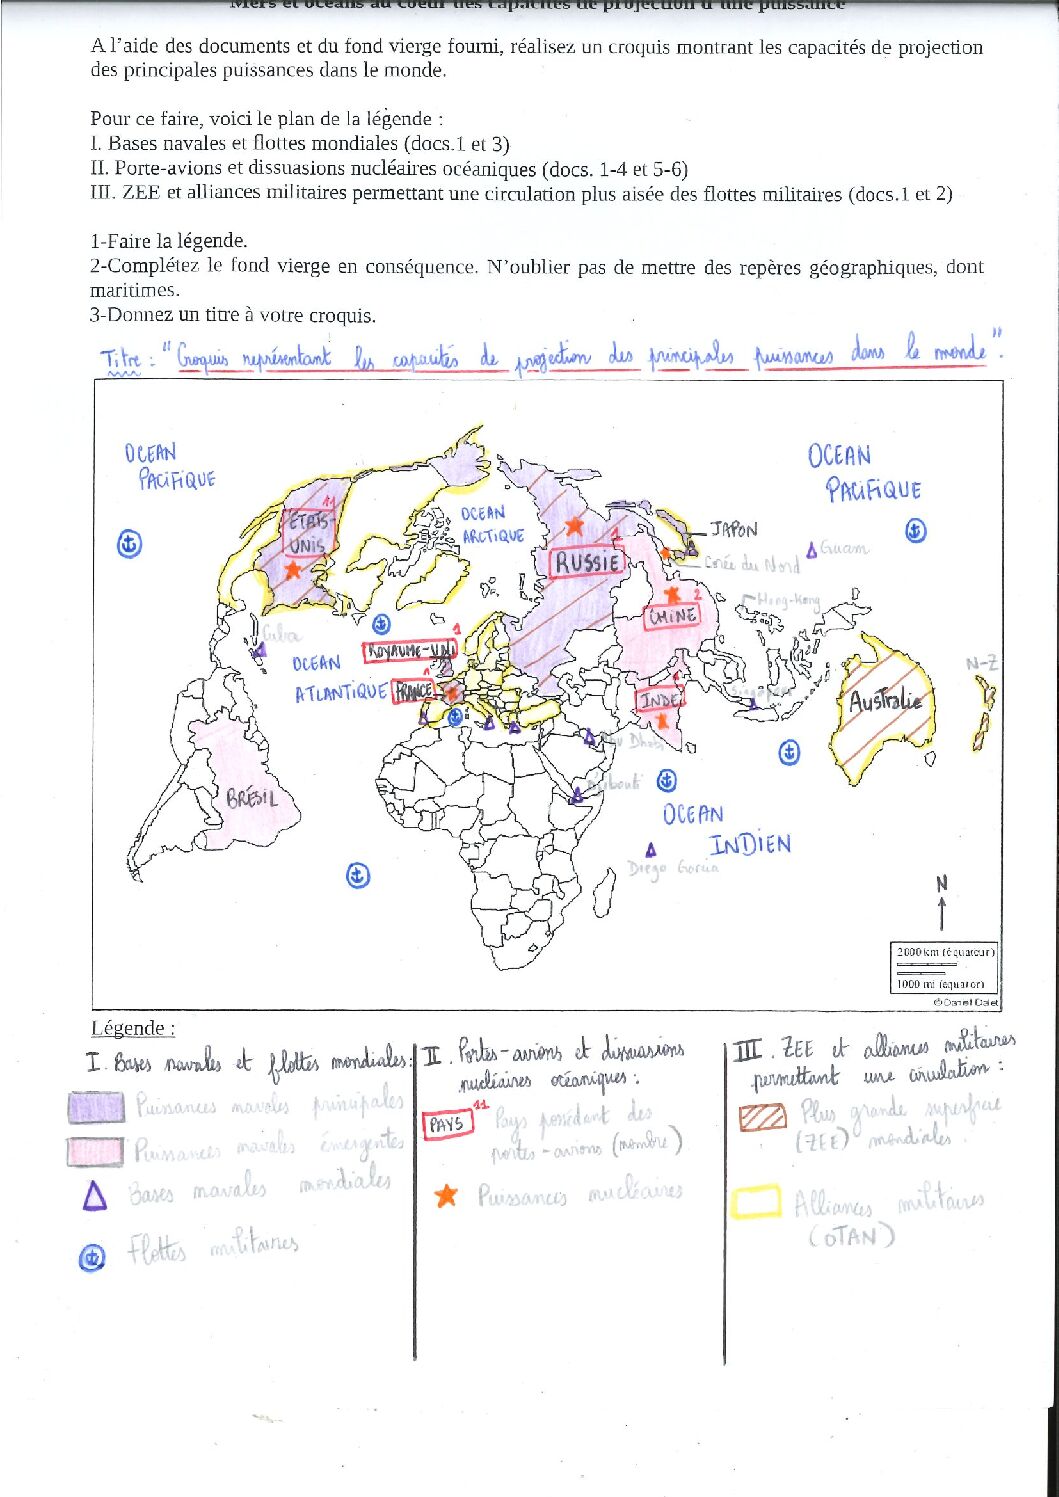 Mers et océans au coeur des capacités de projection d'une puissance
A l'aide des documents et du fond vierge fourni, réalisez un croquis montrant les capacités de projection
des principales puissances dans le monde.
Pour ce faire, voici le plan de la légende :
I. Bases navales et flottes mondiales (docs.1 et 3)
II. Porte-avions et dissuasions nucléaires océaniques (docs. 1-4 et 5-6)
III. ZEE et alliances militaires permettant une circulation plus aisée des flottes militaires (docs.1 et 2)
1-Faire la légende.
2-Complétez le fond vierge en conséquence. N'oublier pas de mettre des repères géographiques, dont
maritimes.
3-Donnez un titre à votre croquis.
Titre : "Croquis représentant les capacités de projection des principales puissances dans le monde".
OCEAN
PACIFIQUE
OCEAN
PACIFIQUE
11
ETATS-
UNIS
OCEAN
ARCTIQUE
1
RUSSIE
JAPON
Corée du Nord
Guam
2
CHINE
Hong-Kong
Cuba
1
ROYAUME-UNI
OCEAN
ATLANTIQUE
1
FRANCE
1
INDE
Singapour
Australie
N-Z
Abu Dhabi
Djibouti
BRÉSIL
OCEAN
INDIEN
Diego Garcia
N
2000 km (équateur)
1000 mi (equator)
© Daniel Dalet
Légende :
I. Bases navales et flottes mondiales :
Puissances navales principales
Puissances navales émergentes
Bases navales mondiales
Flottes militaires
II. Portes-avions et dissuasions
nucléaires océaniques :
PAYS 11
Pays possédant des
portes-avions (nombre)
Puissances nucléaires
III. ZEE et alliances militaires
permettant une circulation :
Plus grande superficie
(ZEE) mondiales.
Alliances militaires
(OTAN)